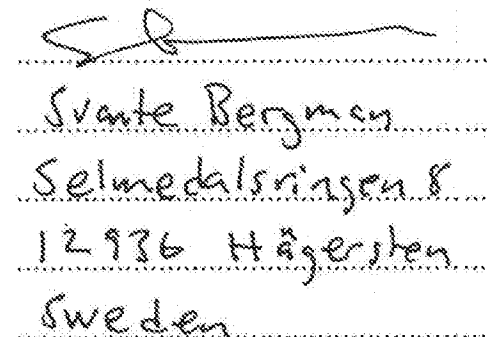 Svante Bergman
Selmedalsringen 8
12936 Hägersten
Sweden